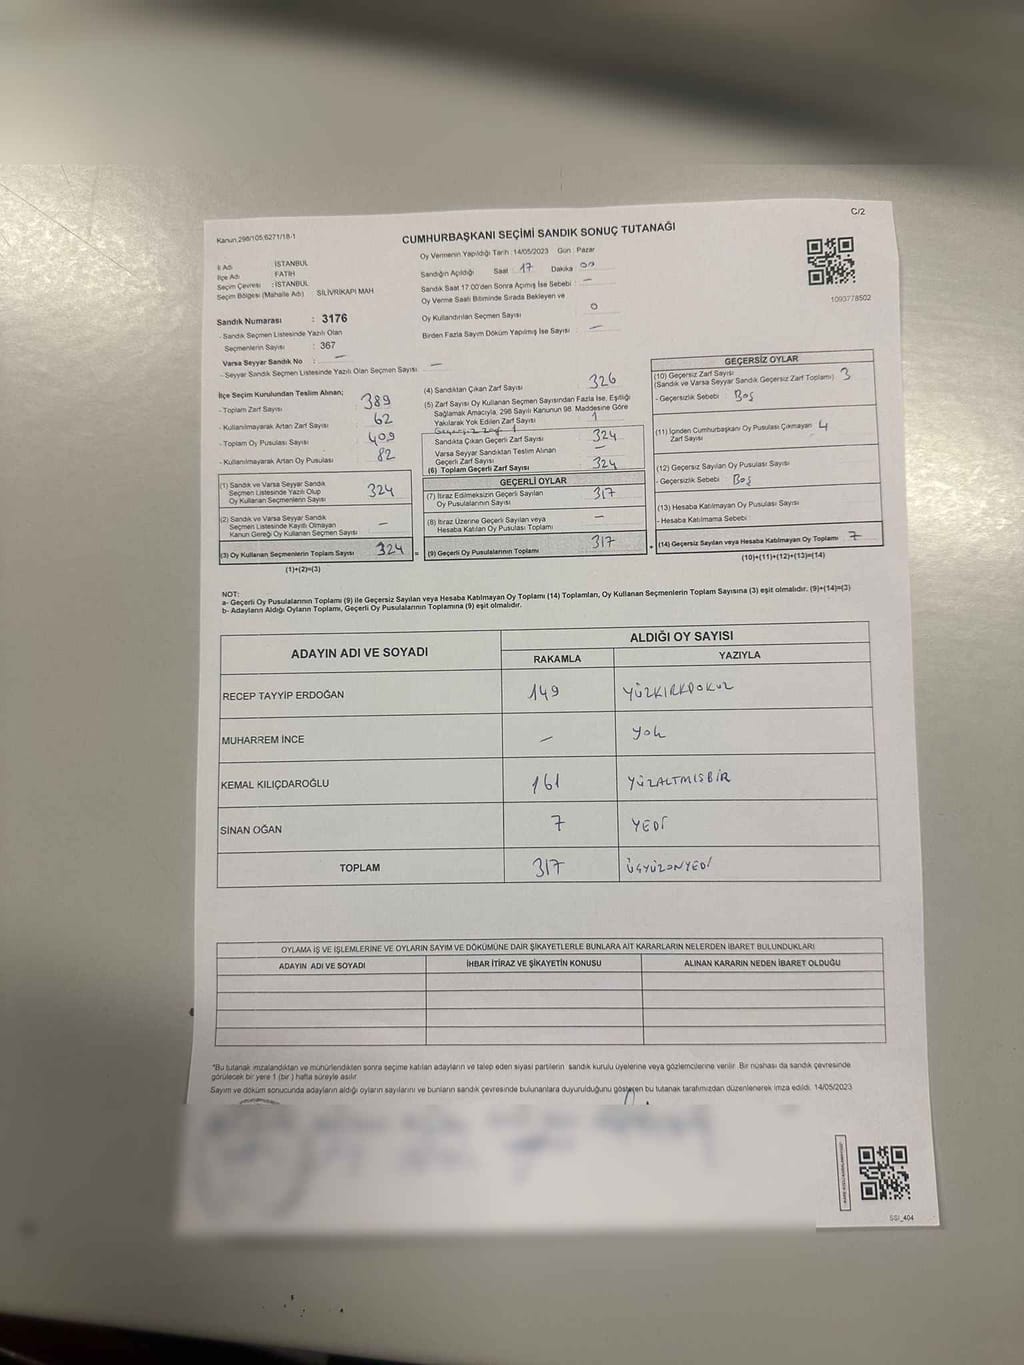 C/2
Kanun,298/105,6271/18-1
CUMHURBAŞKANI SEÇİMİ SANDIK SONUÇ TUTANAĞI
İl Adı : İSTANBUL
İlçe Adı : FATİH
Seçim Çevresi : İSTANBUL
Seçim Bölgesi (Mahalle Adı) SİLİVRİKAPI MAH
Sandık Numarası : 3176
- Sandık Seçmen Listesinde Yazılı Olan
Seçmenlerin Sayısı : 367
Varsa Seyyar Sandık No : —
- Seyyar Sandık Seçmen Listesinde Yazılı Olan Seçmen Sayısı —
Oy Vermenin Yapıldığı Tarih : 14/05/2023 Gün : Pazar
Sandığın Açıldığı Saat : 17 Dakika : 00
Sandık Saat 17:00'den Sonra Açımış İse Sebebi : —
Oy Verme Saati Bitiminde Sırada Bekleyen ve
Oy Kullandırılan Seçmen Sayısı : 0
Birden Fazla Sayım Döküm Yapılmış İse Sayısı : —
1093778502
İlçe Seçim Kurulundan Teslim Alınan;
- Toplam Zarf Sayısı 389
- Kullanılmayarak Artan Zarf Sayısı 62
- Toplam Oy Pusulası Sayısı 409
- Kullanılmayarak Artan Oy Pusulası 82
(1) Sandık ve Varsa Seyyar Sandık
Seçmen Listesinde Yazılı Olup
Oy Kullanan Seçmenlerin Sayısı 324
(2) Sandık ve Varsa Seyyar Sandık
Seçmen Listesinde Kayıtlı Olmayan
Kanun Gereği Oy Kullanan Seçmen Sayısı —
(3) Oy Kullanan Seçmenlerin Toplam Sayısı 324
(1)+(2)=(3)
(4) Sandıktan Çıkan Zarf Sayısı 326
(5) Zarf Sayısı Oy Kullanan Seçmen Sayısından Fazla İse, Eşitliği
Sağlamak Amacıyla, 298 Sayılı Kanunun 98. Maddesine Göre
Yakılarak Yok Edilen Zarf Sayısı 1
Geçersiz zarf 1
Sandıkta Çıkan Geçerli Zarf Sayısı 324
Varsa Seyyar Sandıktan Teslim Alınan
Geçerli Zarf Sayısı —
(6) Toplam Geçerli Zarf Sayısı 324
GEÇERLİ OYLAR
(7) İtiraz Edilmeksizin Geçerli Sayılan
Oy Pusulalarının Sayısı 317
(8) İtiraz Üzerine Geçerli Sayılan veya
Hesaba Katılan Oy Pusulası Toplamı —
= (9) Geçerli Oy Pusulalarının Toplamı 317
GEÇERSİZ OYLAR
(10) Geçersiz Zarf Sayısı
(Sandık ve Varsa Seyyar Sandık Geçersiz Zarf Toplamı) 3
- Geçersizlik Sebebi Boş
(11) İçinden Cumhurbaşkanı Oy Pusulası Çıkmayan 4
Zarf Sayısı
(12) Geçersiz Sayılan Oy Pusulası Sayısı
- Geçersizlik Sebebi Boş
(13) Hesaba Katılmayan Oy Pusulası Sayısı
- Hesaba Katılmama Sebebi
+ (14) Geçersiz Sayılan veya Hesaba Katılmayan Oy Toplamı 7
(10)+(11)+(12)+(13)=(14)
NOT:
a- Geçerli Oy Pusulalarının Toplamı (9) ile Geçersiz Sayılan veya Hesaba Katılmayan Oy Toplamı (14) Toplamları, Oy Kullanan Seçmenlerin Toplam Sayısına (3) eşit olmalıdır. (9)+(14)=(3)
b- Adayların Aldığı Oyların Toplamı, Geçerli Oy Pusulalarının Toplamına (9) eşit olmalıdır.
ADAYIN ADI VE SOYADI ALDIĞI OY SAYISI
RAKAMLA YAZIYLA
RECEP TAYYİP ERDOĞAN 149 YÜZKIRKDOKUZ
MUHARREM İNCE — Yok
KEMAL KILIÇDAROĞLU 161 YÜZALTMIŞBİR
SİNAN OĞAN 7 YEDİ
TOPLAM 317 ÜÇYÜZONYEDİ
OYLAMA İŞ VE İŞLEMLERİNE VE OYLARIN SAYIM VE DÖKÜMÜNE DAİR ŞİKAYETLERLE BUNLARA AİT KARARLARIN NELERDEN İBARET BULUNDUKLARI
ADAYIN ADI VE SOYADI İHBAR İTİRAZ VE ŞİKAYETİN KONUSU ALINAN KARARIN NEDEN İBARET OLDUĞU
*Bu tutanak imzalandıktan ve mühürlendikten sonra seçime katılan adayların ve talep eden siyasi partilerin sandık kurulu üyelerine veya gözlemcilerine verilir. Bir nüshası da sandık çevresinde
görülecek bir yere 1 (bir ) hafta süreyle asılır.
Sayım ve döküm sonucunda adayların aldığı oyların sayılarını ve bunların sandık çevresinde bulunanlara duyurulduğunu gösteren bu tutanak tarafımızdan düzenlenerek imza edildi. 14/05/2023
SSI_404